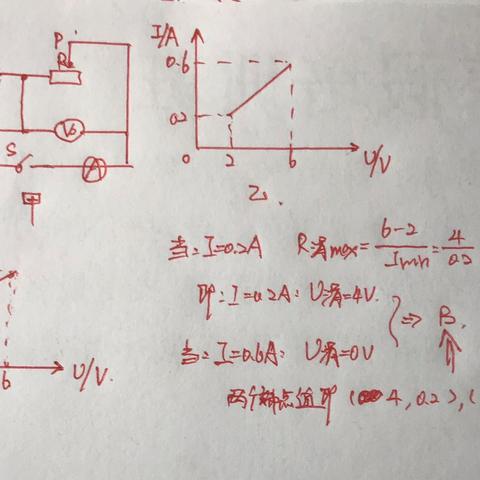 P
R
V₀
S
A
甲
I/A
0.6
0.2
0
2
6
U/V
乙.
当: I=0.2A R滑max = 6-2/Imin = 4/0.2
即: I=0.2A: U滑=4V.
当: I=0.6A: U滑=0V
⇒ B.
两个端点值即 (4, 0.2), (
6
U/V.